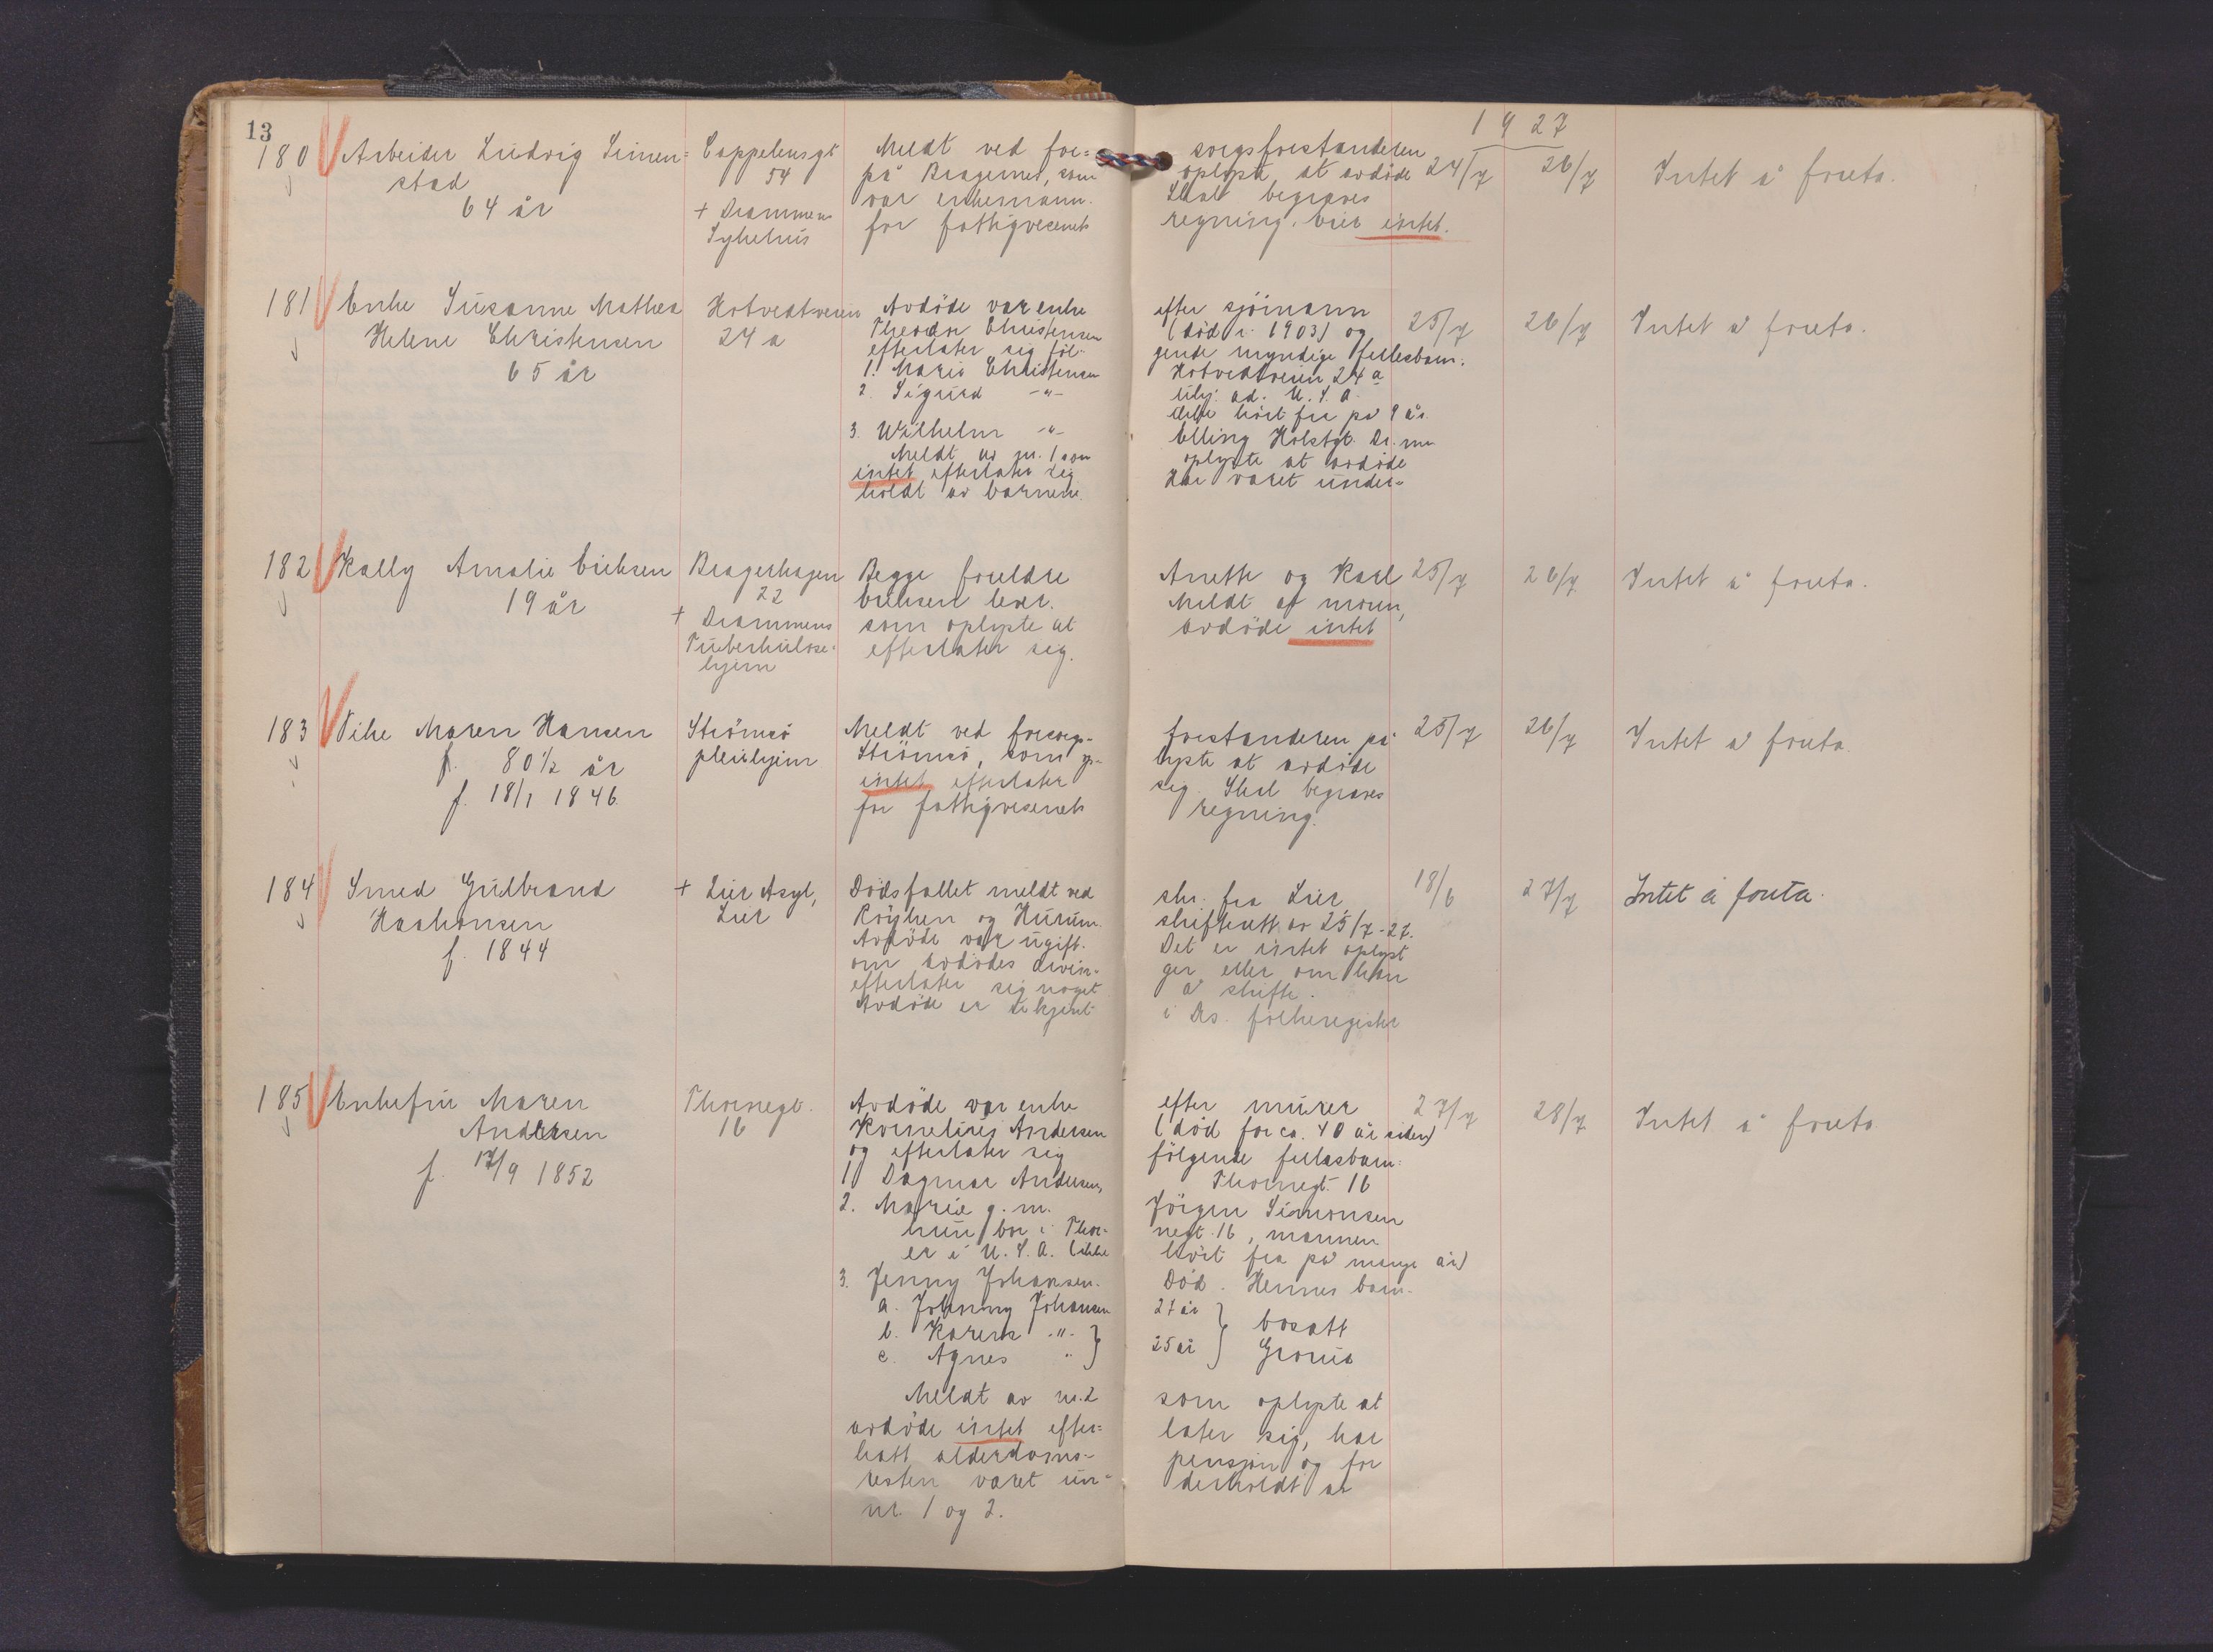 13
1927
180 Arbeider Ludvig Linnen= Cappelensgt Meldt ved for= sorgsforstanderen
stad 54 på Bragernes, som oplyste at avdöde 24/7 26/7 Intet å foreta.
64 år + Drammens var enkemann. Skal begraves
Sykehus for fattigvesenets regning. Eier intet.
181 Enke Susanne Mathea Hotvedtveien Avdöde var enke efter sjömann
Helene Christensen 24 a Theodor Christensen (död i 1903) og 25/7 26/7 Intet å foreta.
65 år efterlater sig föl- gende myndige fellesbarn:
1. Marie Christensen Hotvedtveien 24 a
2. Sigurd -"- U. S. A.
ikke hört fra på 9 år.
3. Wilhelm -"- Elling Holstgt. Dr.
Meldt av nr. 1 som oplyste at avdöde
intet efterlater sig Har været under=
holdt av barnene.
182 Kally Amalie Eriksen Bragerhagen Begge foreldre Anette og Karl 25/7 26/7 Intet å foreta.
19 år 22 Eriksen lever. Meldt af moren,
+ Drammens som oplyste at avdöde intet
Tuberkulose- efterlater sig.
hjem
183 Pike Maren Hansen Strömsö Meldt ved forsorgs- forstanderen på 25/7 26/7 Intet å foreta.
f. 80 1/2 år pleiehjem Strömsö, som op- lyste at avdöde
f. 18/1 1846. intet efterlater sig. Skal begraves
for fattigvesenets regning.
184 Smed Gulbrand + Lier Asyl, Dödsfallet meldt ved skr. fra Lier, 18/6 27/7 Intet å foreta.
Haakonsen Lier Röyken og Hurum skifterett av 25/7-27.
f. 1844 Avdöde var ugift. Det er intet oplyst
om avdödes arvin- ger eller om han
efterlater sig noget å skifte.
Avdöde er ukjent i Drs. folkeregister
185 Enkefru Maren Thornegt. Avdöde var enke efter murer 27/7 28/7 Intet å foreta
Andersen 16 Kornelius Andersen (död for ca. 40 år siden)
f. 17/9 1852 og efterlater sig fölgende fellesbarn:
1) Dagmar Andersen, Thornegt. 16
2. Marie g. m. Jörgen Simonsen
hun bor i Thor- negt. 16, mannen
er i U. S. A. (ikke hört fra på mange år)
3. Jenny Johansen. Död. Hennes barn.
a. Johnny Johansen 27 år
b. Karens -"- } bosatt
c. Agnes " 25 år } Grorud
Meldt av nr. 2 som oplyste at
avdöde intet efter= later sig, har
hatt alderdoms- pensjon og for
resten været un= derholdt av
nr. 1 og 2.